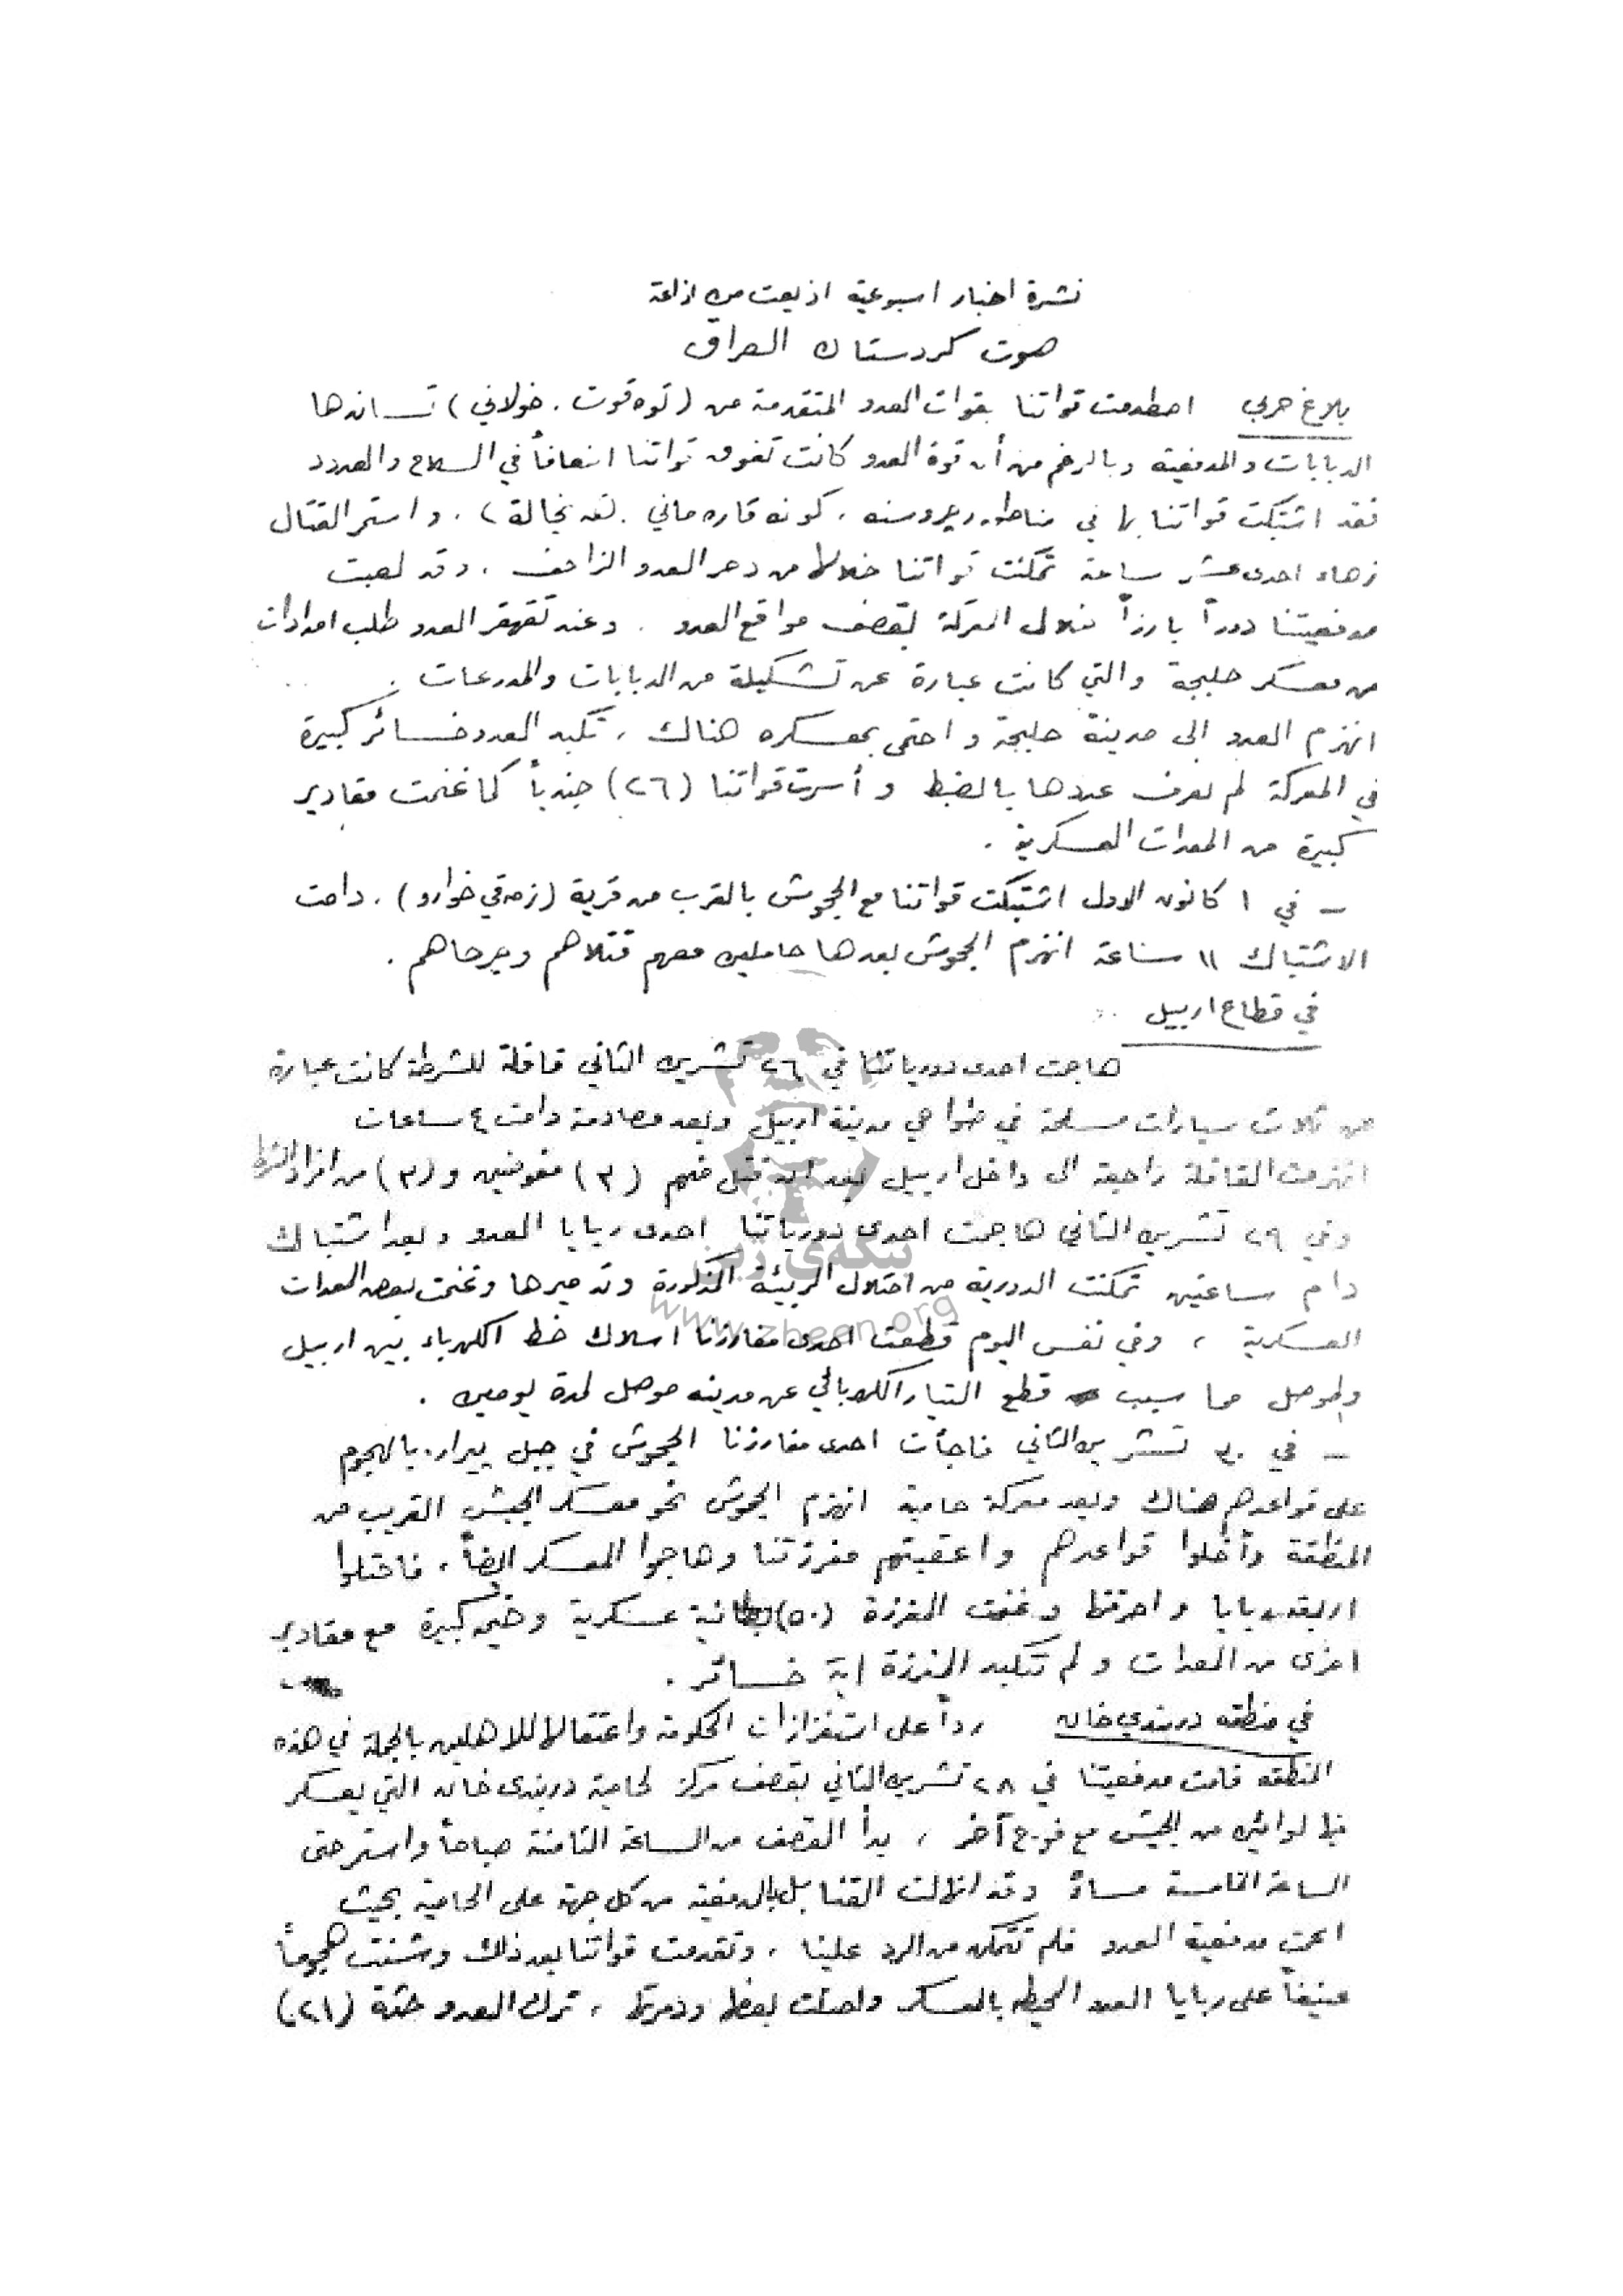 نشرة اخبار اسبوعية اذيعت من اذاعة
صوت كردستان العراق
بلاغ حربي اصطدمت قواتنا بقوات العدو المتقدمة من (توه قوت . خولاني) تساندها
الدبابات والمدفعية وبالرغم من أن قوة العدو كانت تفوق قواتنا اضعافاً في السلاح والعدد
فقد اشتبكت قواتنا بها في مناطق . كونه قاره ماني . واستمر القتال
زهاء احدى عشر ساعة تمكنت قواتنا خلالها من دحر العدو الزاحف . وقد لعبت
مدفعيتنا دوراً بارزاً خلال المعركة بقصف مواقع العدو . وعند تقهقر العدو طلب امدادات
من معسكر حلبجة والتي كانت عبارة عن تشكيلة من الدبابات والمدرعات .
انهزم العدو الى مدينة حلبجة واحتمى بمعسكره هناك ، تكبد العدو خسائر كبيرة
في المعركة لم نعرف عددها بالضبط و أسرت قواتنا (٢٦) جندياً كما غنمت مقادير
كبيرة من المعدات العسكرية .
– في ١ كانون الاول اشتبكت قواتنا مع الجحوش بالقرب من قرية (زمقي خوارو) . دامت
الاشتباك ١١ ساعة انهزم الجحوش بعدها حاملين معهم قتلاهم وجرحاهم .
في قطاع اربيل
هاجمت احدى دورياتنا في ٢٦ تشرين الثاني قافلة للشرطة كانت عبارة
من ثلاث سيارات مسلحة في ضواحي مدينة اربيل وبعد مصادمة دامت ٤ ساعات
انهزمت القافلة راجعة الى داخل اربيل بعد ان قتل منهم (٣) مفوضين و (٣) من افراد الشرطة
وفي ٢٩ تشرين الثاني هاجمت احدى دورياتنا احدى ربايا العدو وبعد اشتباك
دام ساعتين تمكنت الدورية من احتلال الربيئة المذكورة وتدميرها وغنمت بعض المعدات
العسكرية ، وفي نفس اليوم قطعت احدى مفارزنا اسلاك خط الكهرباء بين اربيل
والموصل مما سبب قطع التيار الكهربائي عن مدينة موصل لمدة يومين .
– في ٣٠ تشرين الثاني فاجأت احدى مفارزنا الجحوش في جبل بالهجوم
على قواعدهم هناك وبعد معركة حامية انهزم الجحوش نحو معسكر الجيش القريب من
المنطقة وأخلوا قواعدهم واعقبتهم مفرزتنا وهاجموا المعسكر ايضاً ، فاحتلوا
اربعة ربايا واحرقتها وغنمت المفرزة (٥٠) بطانية عسكرية وخيمة كبيرة مع مقادير
اخرى من المعدات و لم تتكبد المفرزة اية خسائر .
في منطقة دربندي خان رداً على استفزازات الحكومة واعتقالها للاهلين بالجملة في هذه
المنطقة قامت مدفعيتنا في ٢٨ تشرين الثاني بقصف مركز لحامية دربندي خان التي يعسكر
فيها لوائين من الجيش مع فوج آخر ، بدأ القصف من الساعة الثامنة صباحاً واستمر حتى
الساعة الخامسة مساءً وقد انهالت القنابل بالمدفعية من كل جهة على الحامية بحيث
مدفعية العدو فلم تتمكن من الرد علينا ، وتقدمت قواتنا بعد ذلك وشنت هجوماً
عنيفاً على ربايا العدو المحيطة بالمعسكر واحتلت بعضها ودمرتها ، ترك العدو جثة (٢١)
بنکەی ژین
www.zheen.org